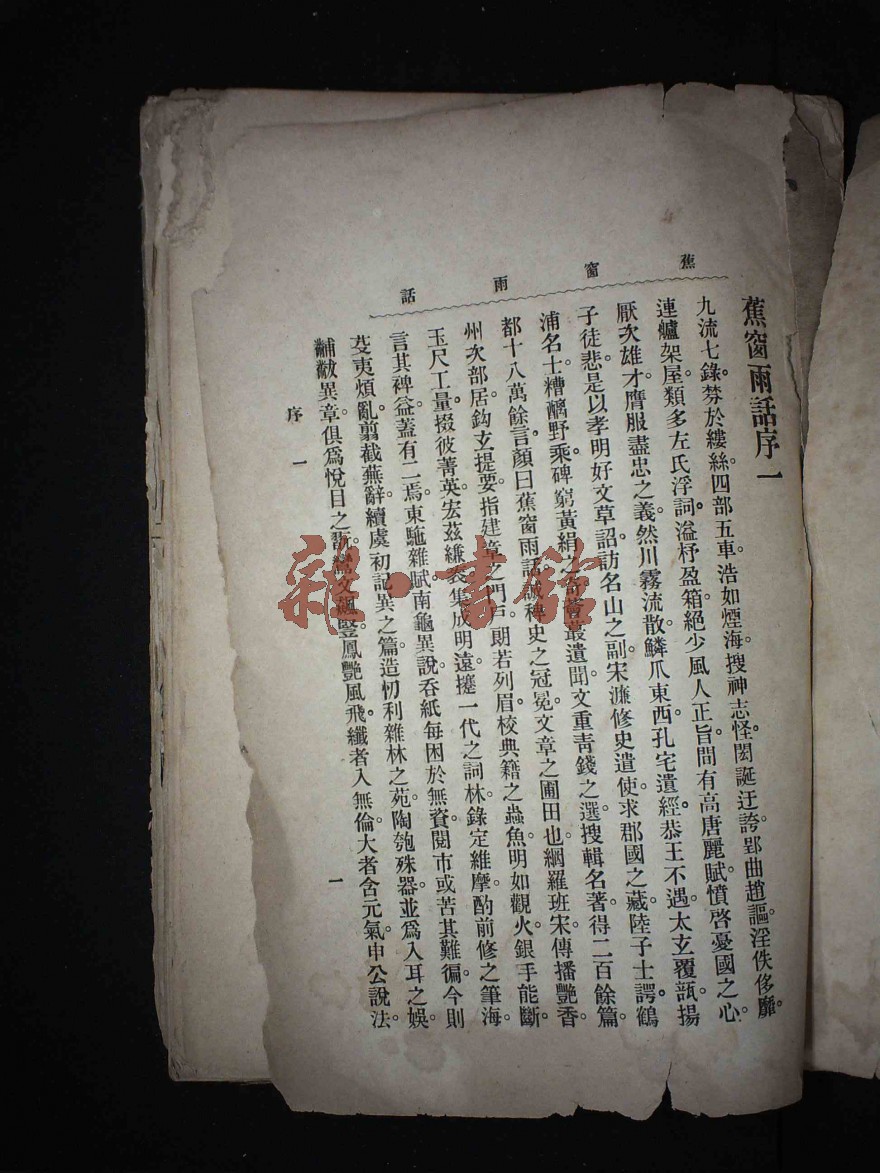 蕉窗雨話
蕉窗雨話序一
九流七錄。棼於縷絲。四部五車。浩如煙海。搜神志怪。閎誕迂誇。郢曲趙謳。淫佚侈靡。
連爐架屋。類多左氏浮詞。溢杼盈箱。絕少風人正旨。間有高唐麗賦。憤啓憂國之心。
厭次雄才。膺服盡忠之義。然川霧流散。鱗爪東西。孔宅遺經。恭王不遇。太玄覆瓿。揚
子徒悲。是以孝明好文。草詔訪名山之副。宋濂修史。遣使求郡國之藏。陸子士諤。鶴
浦名士。糟醨野乘。碑窮黃絹之奇。薈叢遺聞。文重靑錢之選。搜輯名著。得二百餘篇。
都十八萬餘言。顏曰蕉窗雨話。誠稗史之冠冕。文章之圃田也。網羅班宋。傳播艷香。
州次部居。鈎玄提要。指建章之門戶。朗若列眉。校典籍之蟲魚。明如觀火。銀手能斷。
玉尺工量。掇彼菁英。宏茲縑袠。集成明遠。攓一代之詞林。錄定維摩。酌前修之筆海。
言其裨益。蓋有二焉。東駞雜賦。南龜異說。呑紙每困於無資。閱市或苦其難徧。今則
芟夷煩亂。翦截蕪辭。續虞初記異之篇。造忉利雜林之苑。陶匏殊器。並爲入耳之娛。
黼黻異章。俱爲悅目之翫。鸞文飄豎。鳳艷風飛。纖者入無倫。大者含元氣。申公說法。
序一
一
雜·書館